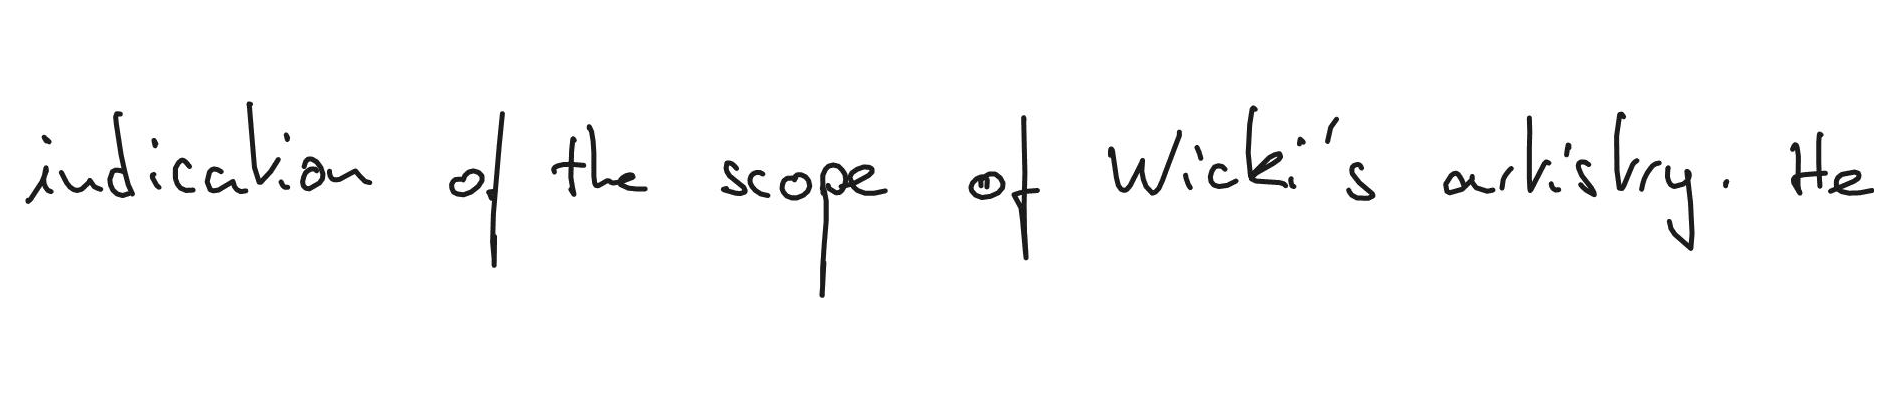 indication of the scope of Wicki's artistry. He